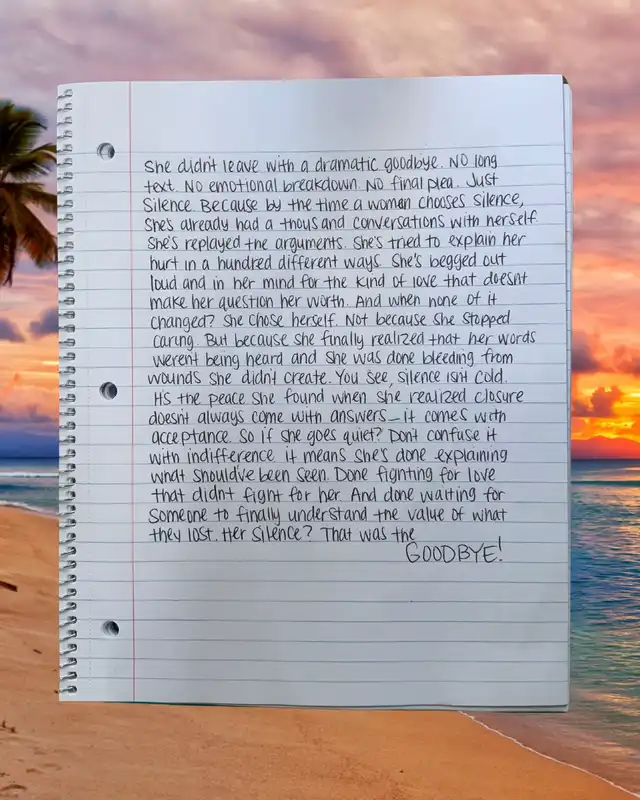 She didn't leave with a dramatic goodbye. NO long
text. NO emotional breakdown. NO final plea. Just
Silence. Because by the time a woman chooses silence,
She's already had a thousand conversations with herself.
She's replayed the arguments. She's tried to explain her
hurt in a hundred different ways. She's begged out
loud and in her mind for the kind of love that doesn't
make her question her worth. And when none of it
changed? She chose herself. Not because she stopped
caring. But because she finally realized that her words
weren't being heard and she was done bleeding from
wounds she didn't create. You see, silence isn't cold.
It's the peace she found when she realized closure
doesn't always come with answers—it comes with
acceptance. So if she goes quiet? Don't confuse it
with indifference. it means she's done explaining
what should've been seen. Done fighting for love
that didn't fight for her. And done waiting for
someone to finally understand the value of what
they lost. Her silence? That was the
GOODBYE!